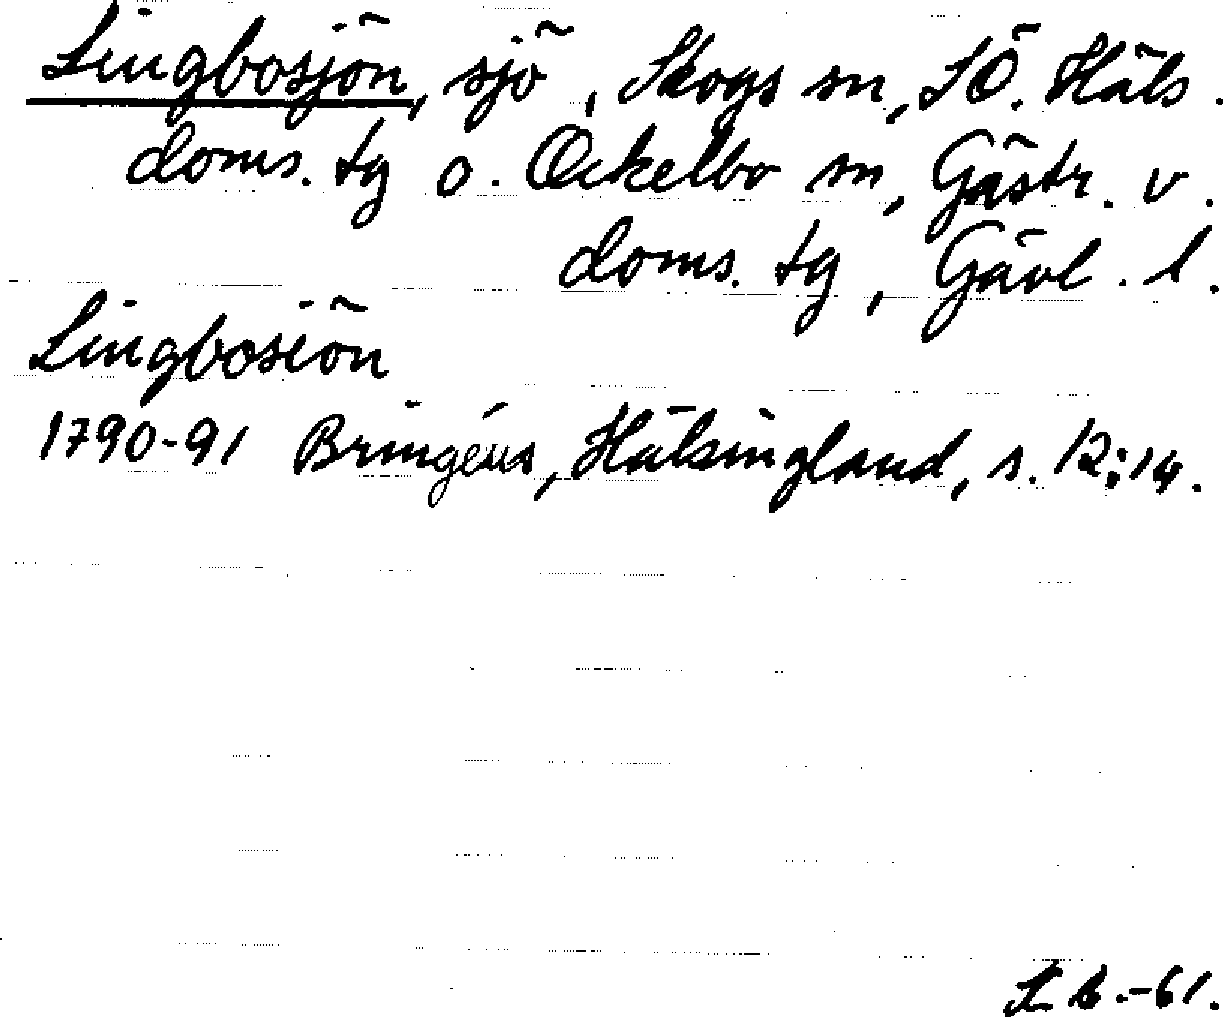 Lingbosjön, sjö, Skogs sn, SÖ. Häls.
doms. tg o. Ockelbo sn, Gästr. v.
doms. tg, Gävl. l.
Lingbosiön
1790-91 Bringéus, Hälsingland, s. 12; 14.
L B.-61.